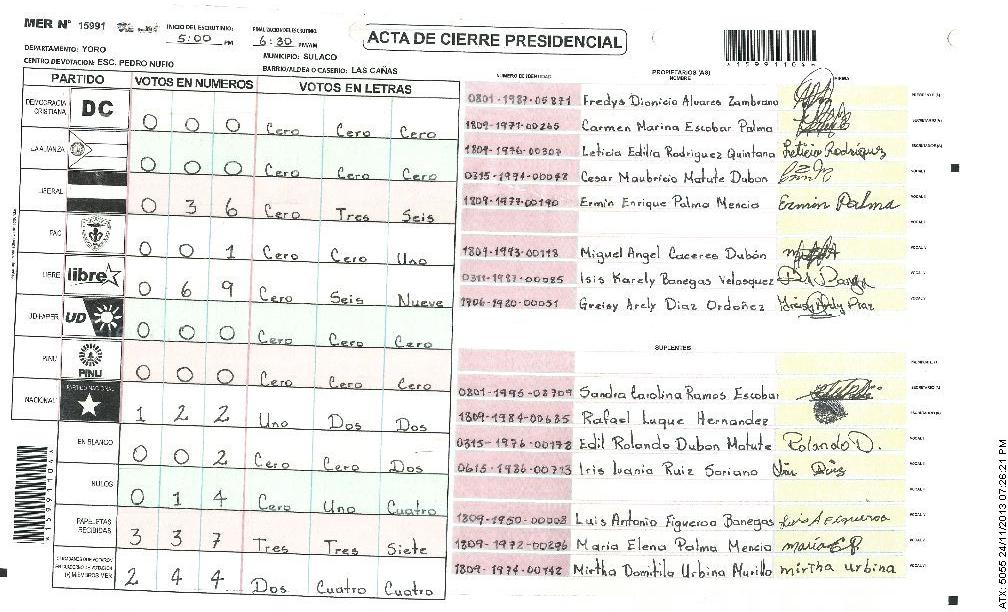 MER N° 15991
INICIO DEL ESCRUTINIO: 5:00 PM
FINALIZACION DEL ESCRUTINIO: 6:30 PM/AM
ACTA DE CIERRE PRESIDENCIAL
*15991104*
DEPARTAMENTO: YORO
MUNICIPIO: SULACO
CENTRO DE VOTACION: ESC. PEDRO NUFIO
BARRIO/ALDEA O CASERIO: LAS CAÑAS
PARTIDO VOTOS EN NUMEROS VOTOS EN LETRAS
DEMOCRACIA CRISTIANA DC 0 0 0 Cero Cero Cero
LA ALIANZA 0 0 0 Cero Cero Cero
LIBERAL 0 3 6 Cero Tres Seis
PAC 0 0 1 Cero Cero Uno
LIBRE libre 0 6 9 Cero Seis Nueve
UD-FAPER UD 0 0 0 Cero Cero Cero
PINU PINU 0 0 0 Cero Cero Cero
NACIONAL PARTIDO NACIONAL 1 2 2 Uno Dos Dos
EN BLANCO 0 0 2 Cero Cero Dos
NULOS 0 1 4 Cero Uno Cuatro
PAPELETAS RECIBIDAS 3 3 7 Tres Tres Siete
2 4 4 Dos Cuatro Cuatro
NUMERO DE IDENTIDAD PROPIETARIOS (AS) NOMBRE FIRMA
0801-1987-05871 Fredys Dionicio Alvares Zambrano
1809-1971-00265 Carmen Marina Escobar Palma
1809-1976-00307 Leticia Edilia Rodriguez Quintana Leticia Rodríguez
0315-1974-00048 Cesar Maubricio Matute Dubon
1809-1977-00190 Ermin Enrique Palma Mencia Ermin Palma
1809-1993-00118 Miguel Angel Caceres Dubón
0311-1987-00085 Isis Karely Banegas Velasquez
1906-1980-00051 Greisy Arely Diaz Ordoñez
SUPLENTES
0801-1995-08709 Sandra Carolina Ramos Escobar
1809-1984-00685 Rafael Luque Hernandez
0315-1976-00178 Edil Rolando Dubon Matute Rolando D.
0615-1986-00773 Iris Ivania Ruiz Soriano
1809-1950-00008 Luis Antonio Figueroa Banegas Luis A Figueroa
1809-1972-00296 Maria Elena Palma Mencia maría E P.
1809-1974-00142 Mirtha Domitila Urbina Murillo mirtha urbina
ATX: 5055 24/11/2013 07:26:21 PM